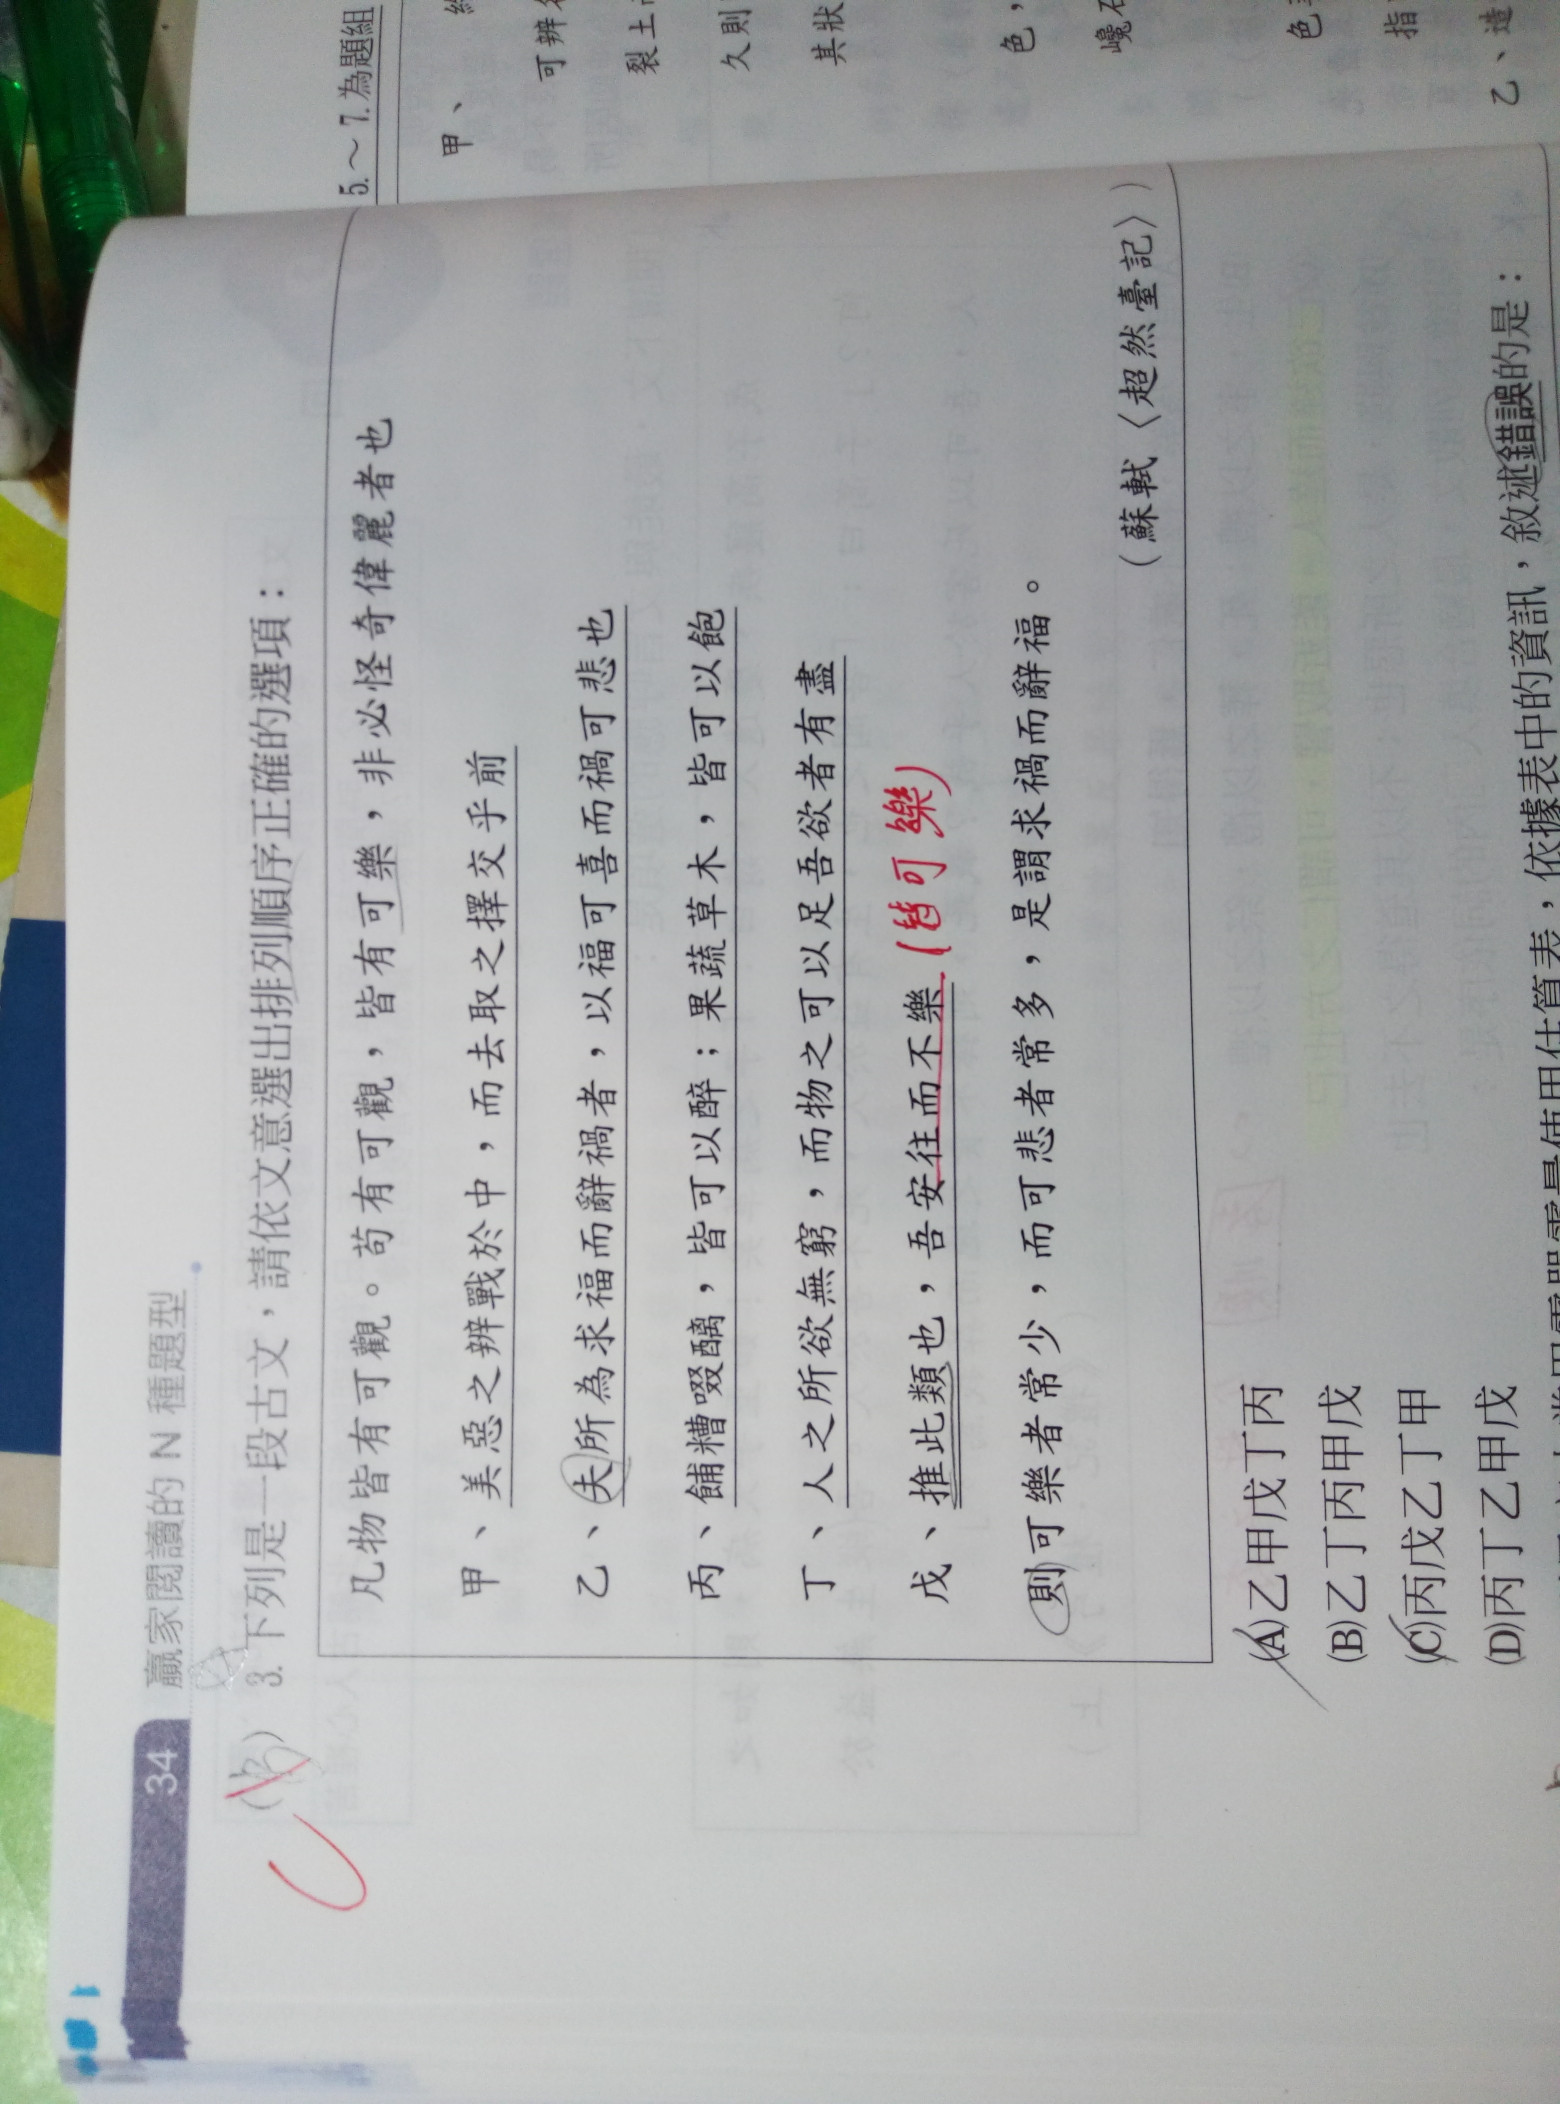 34 贏家閱讀的 N 種題型
(B) 3. 下列是一段古文，請依文意選出排列順序正確的選項：
C
凡物皆有可觀。苟有可觀，皆有可樂，非必怪奇偉麗者也
甲、美惡之辨戰於中，而去取之擇交乎前
乙、夫所為求福而辭禍者，以福可喜而禍可悲也
丙、餔糟啜醨，皆可以醉；果蔬草木，皆可以飽
丁、人之所欲無窮，而物之可以足吾欲者有盡
戊、推此類也，吾安往而不樂 (皆可樂)
則可樂者常少，而可悲者常多，是謂求禍而辭福。
（蘇軾〈超然臺記〉）
(A)乙甲戊丁丙
(B)乙丁丙甲戊
(C)丙戊乙丁甲
(D)丙丁乙甲戊
依據表中的資訊，敘述錯誤的是：
5.～7.為題組
甲、
可辨
裂土
久則
其狀
色，
巉石
色
指
乙、造